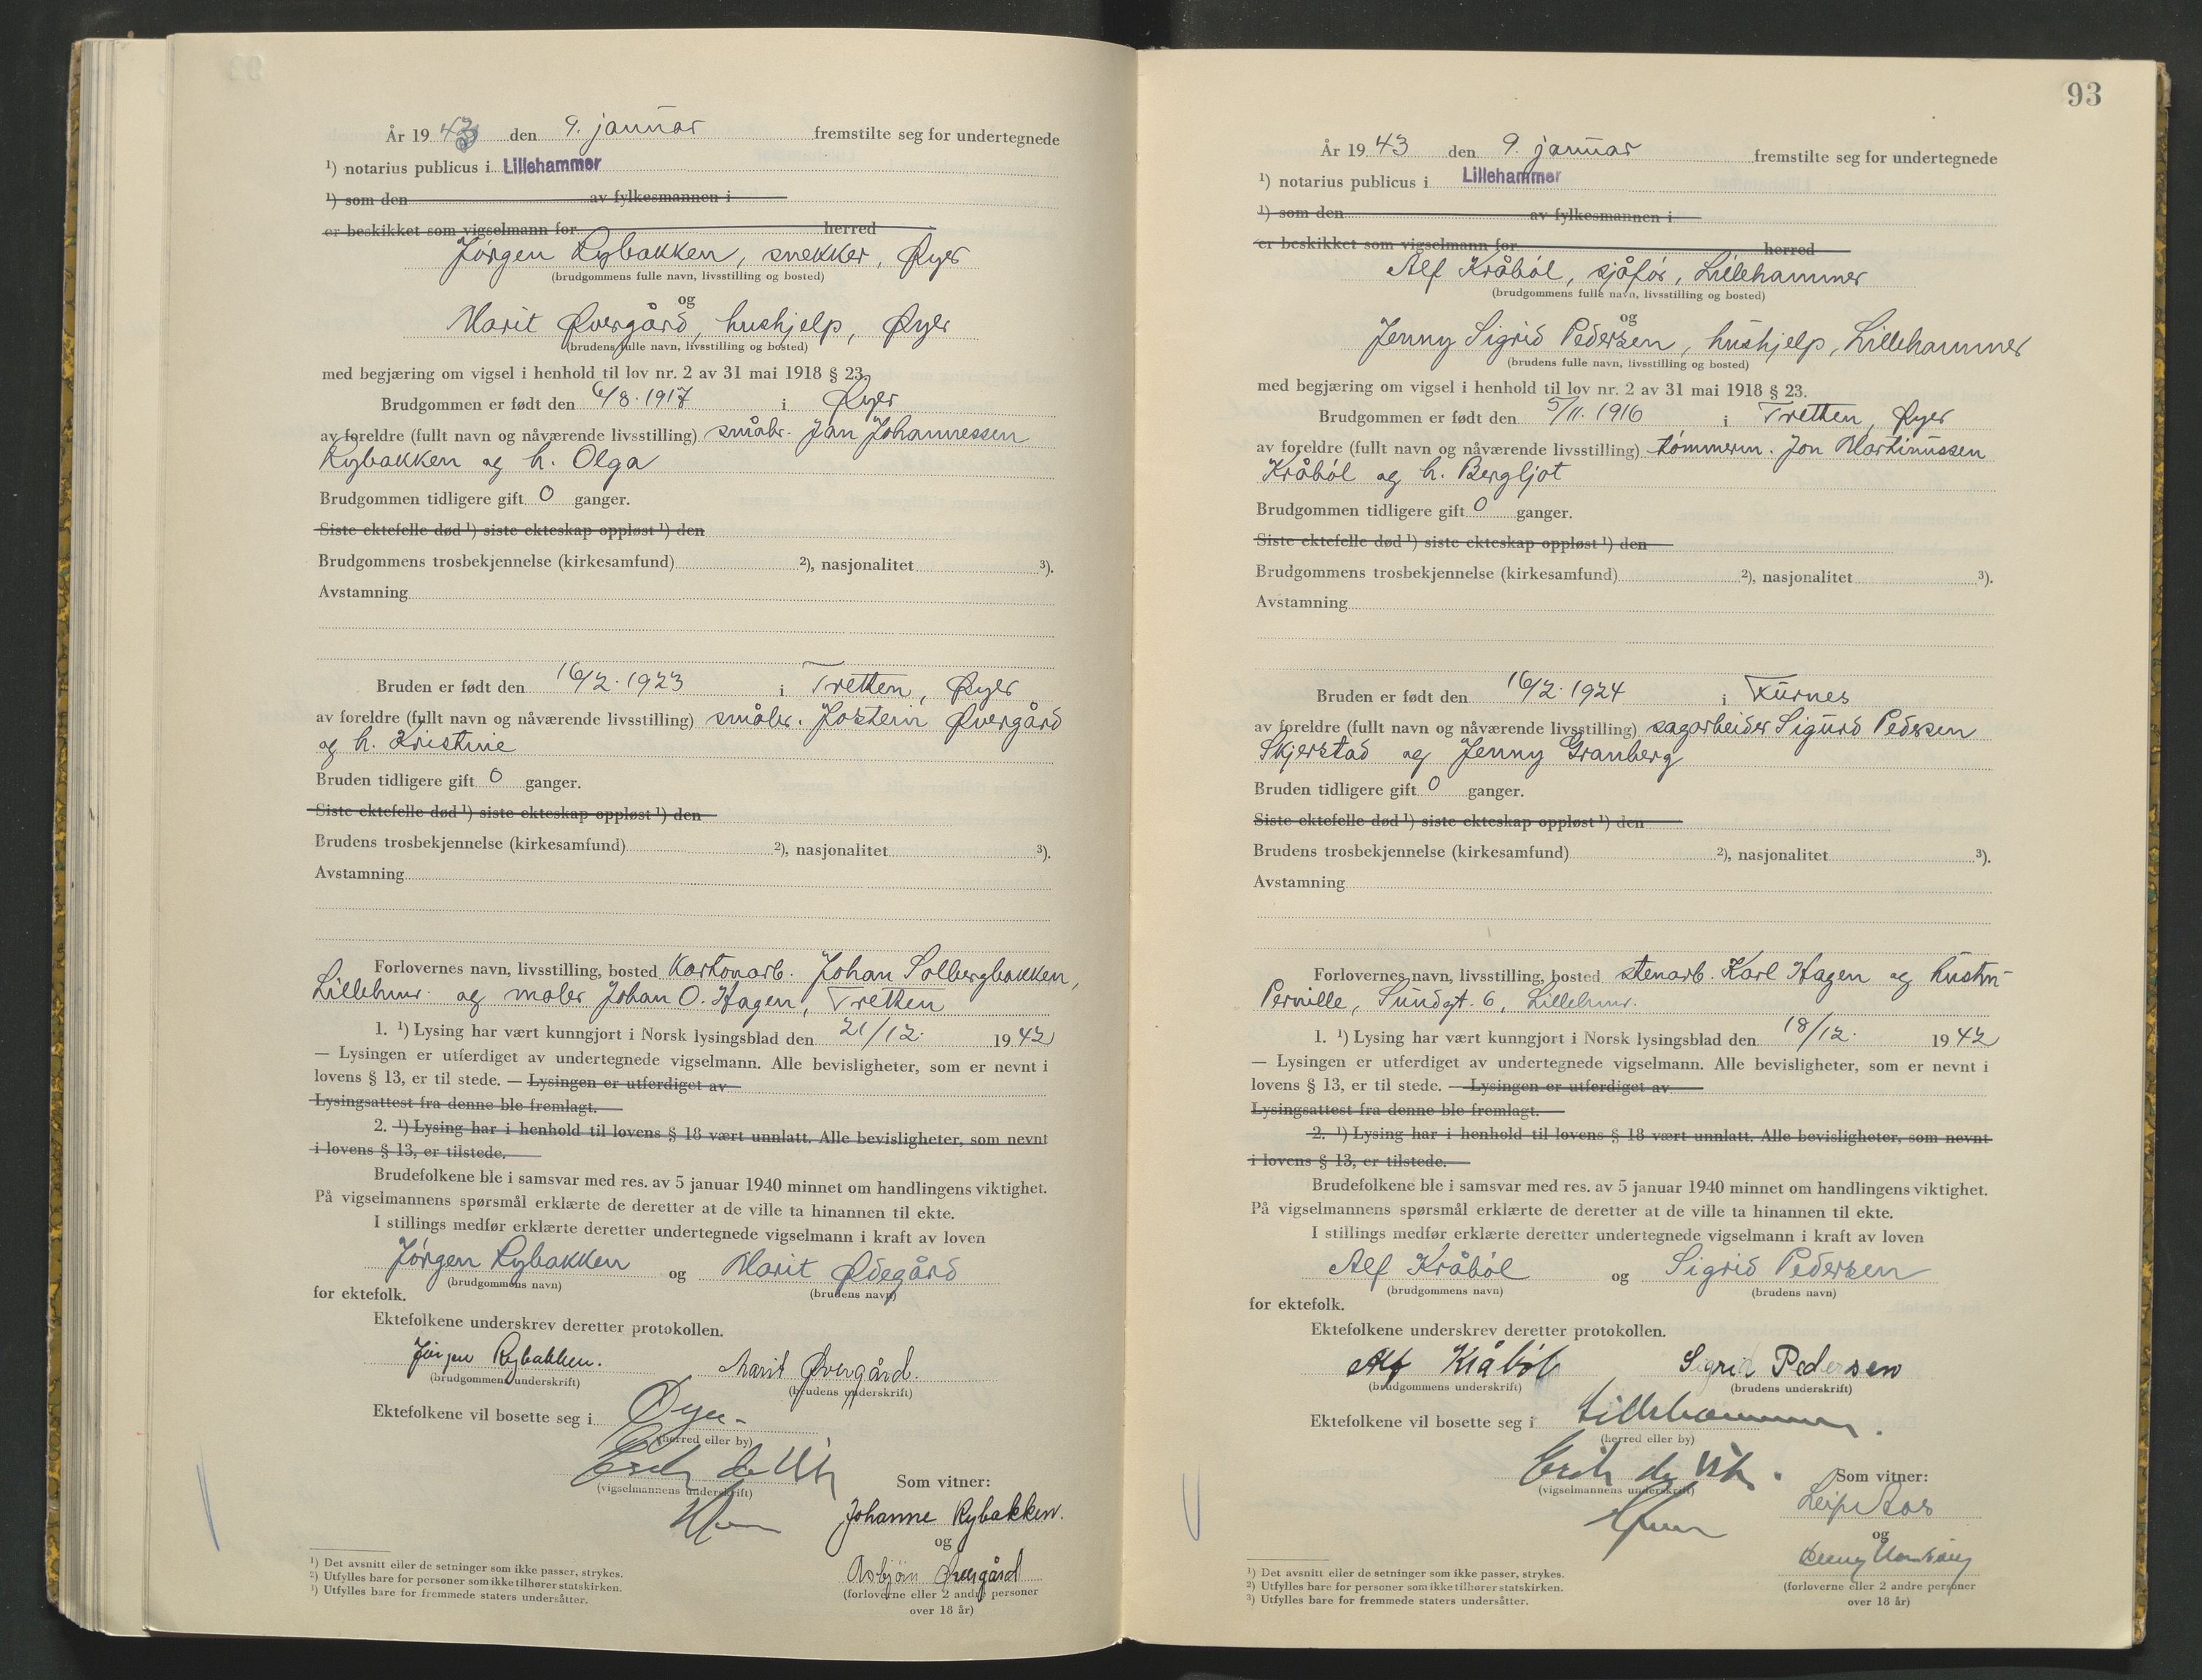 År 1943 den 9. januar fremstilte seg for undertegnede
¹) notarius publicus i Lillehammer
¹) som den av fylkesmannen i
er beskikket som vigselmann for herred
Jørgen Rybakken, snekker, Øyer
(brudgommens fulle navn, livsstilling og bosted)
og
Marit Øvergård, hushjelp, Øyer
(brudens fulle navn, livsstilling og bosted)
med begjæring om vigsel i henhold til lov nr. 2 av 31 mai 1918 § 23.
Brudgommen er født den 6/8. 1917 i Øyer
av foreldre (fullt navn og nåværende livsstilling) småbr. Jan Johannessen
Rybakken og h. Olga
Brudgommen tidligere gift 0 ganger.
Siste ektefelle død ¹) siste ekteskap oppløst ¹) den
Brudgommens trosbekjennelse (kirkesamfund) ²), nasjonalitet ³).
Avstamning
Bruden er født den 16/2. 1923 i Tretten, Øyer
av foreldre (fullt navn og nåværende livsstilling) småbr. Jostein Øvergård
og h. Kristine
Bruden tidligere gift 0 ganger.
Siste ektefelle død ¹) siste ekteskap oppløst ¹) den
Brudens trosbekjennelse (kirkesamfund) ²), nasjonalitet ³).
Avstamning
Forlovernes navn, livsstilling, bosted Kartonarb. Johan Solbergbakken,
Lillehmr. og maler Johan O. Hagen, Tretten
1. ¹) Lysing har vært kunngjort i Norsk lysingsblad den 21/12. 1942
— Lysingen er utferdiget av undertegnede vigselmann. Alle bevisligheter, som er nevnt i
lovens § 13, er til stede. — Lysingen er utferdiget av
Lysingsattest fra denne ble fremlagt.
2. ¹) Lysing har i henhold til lovens § 18 vært unnlatt. Alle bevisligheter, som nevnt
i lovens § 13, er tilstede.
Brudefolkene ble i samsvar med res. av 5 januar 1940 minnet om handlingens viktighet.
På vigselmannens spørsmål erklærte de deretter at de ville ta hinannen til ekte.
I stillings medfør erklærte deretter undertegnede vigselmann i kraft av loven
Jørgen Rybakken og Marit Ødegård
(brudgommens navn) (brudens navn)
for ektefolk.
Ektefolkene underskrev deretter protokollen.
Jørgen Rybakken. Marit Øvergård.
(brudgommens underskrift) (brudens underskrift)
Ektefolkene vil bosette seg i Øyer
(herred eller by)
(vigselmannens underskrift)
Som vitner:
Johanne Rybakken.
og
Asbjørn Øvergård
(forloverne eller 2 andre personer
over 18 år)
¹) Det avsnitt eller de setninger som ikke passer, strykes.
²) Utfylles bare for personer som ikke tilhører statskirken.
³) Utfylles bare for fremmede staters undersåtter.
93
År 1943 den 9. januar fremstilte seg for undertegnede
¹) notarius publicus i Lillehammer
¹) som den av fylkesmannen i
er beskikket som vigselmann for herred
Alf Kråbøl, sjåfør, Lillehammer
(brudgommens fulle navn, livsstilling og bosted)
og
Jenny Sigrid Pedersen, hushjelp, Lillehammer
(brudens fulle navn, livsstilling og bosted)
med begjæring om vigsel i henhold til lov nr. 2 av 31 mai 1918 § 23.
Brudgommen er født den 5/11. 1916 i Tretten, Øyer
av foreldre (fullt navn og nåværende livsstilling) tømmerm. Jon Martinussen
Kråbøl og h. Bergljot
Brudgommen tidligere gift 0 ganger.
Siste ektefelle død ¹) siste ekteskap oppløst ¹) den
Brudgommens trosbekjennelse (kirkesamfund) ²), nasjonalitet ³).
Avstamning
Bruden er født den 16/2. 1924 i Furnes
av foreldre (fullt navn og nåværende livsstilling) sagarbeider Sigurd Pedersen
Skjerstad og Jenny Granberg
Bruden tidligere gift 0 ganger.
Siste ektefelle død ¹) siste ekteskap oppløst ¹) den
Brudens trosbekjennelse (kirkesamfund) ²), nasjonalitet ³).
Avstamning
Forlovernes navn, livsstilling, bosted stenarb. Karl Hagen og hustru
Pernille, Sundgt. 6, Lillehmr.
1. ¹) Lysing har vært kunngjort i Norsk lysingsblad den 18/12. 1942
— Lysingen er utferdiget av undertegnede vigselmann. Alle bevisligheter, som er nevnt i
lovens § 13, er til stede. — Lysingen er utferdiget av
Lysingsattest fra denne ble fremlagt.
2. ¹) Lysing har i henhold til lovens § 18 vært unnlatt. Alle bevisligheter, som nevnt
i lovens § 13, er tilstede.
Brudefolkene ble i samsvar med res. av 5 januar 1940 minnet om handlingens viktighet.
På vigselmannens spørsmål erklærte de deretter at de ville ta hinannen til ekte.
I stillings medfør erklærte deretter undertegnede vigselmann i kraft av loven
Alf Kråbøl og Sigrid Pedersen
(brudgommens navn) (brudens navn)
for ektefolk.
Ektefolkene underskrev deretter protokollen.
Alf Kråbøl Sigrid Pedersen
(brudgommens underskrift) (brudens underskrift)
Ektefolkene vil bosette seg i Lillehammer.
(herred eller by)
(vigselmannens underskrift)
Som vitner:
og
(forloverne eller 2 andre personer
over 18 år)
¹) Det avsnitt eller de setninger som ikke passer, strykes.
²) Utfylles bare for personer som ikke tilhører statskirken.
³) Utfylles bare for fremmede staters undersåtter.